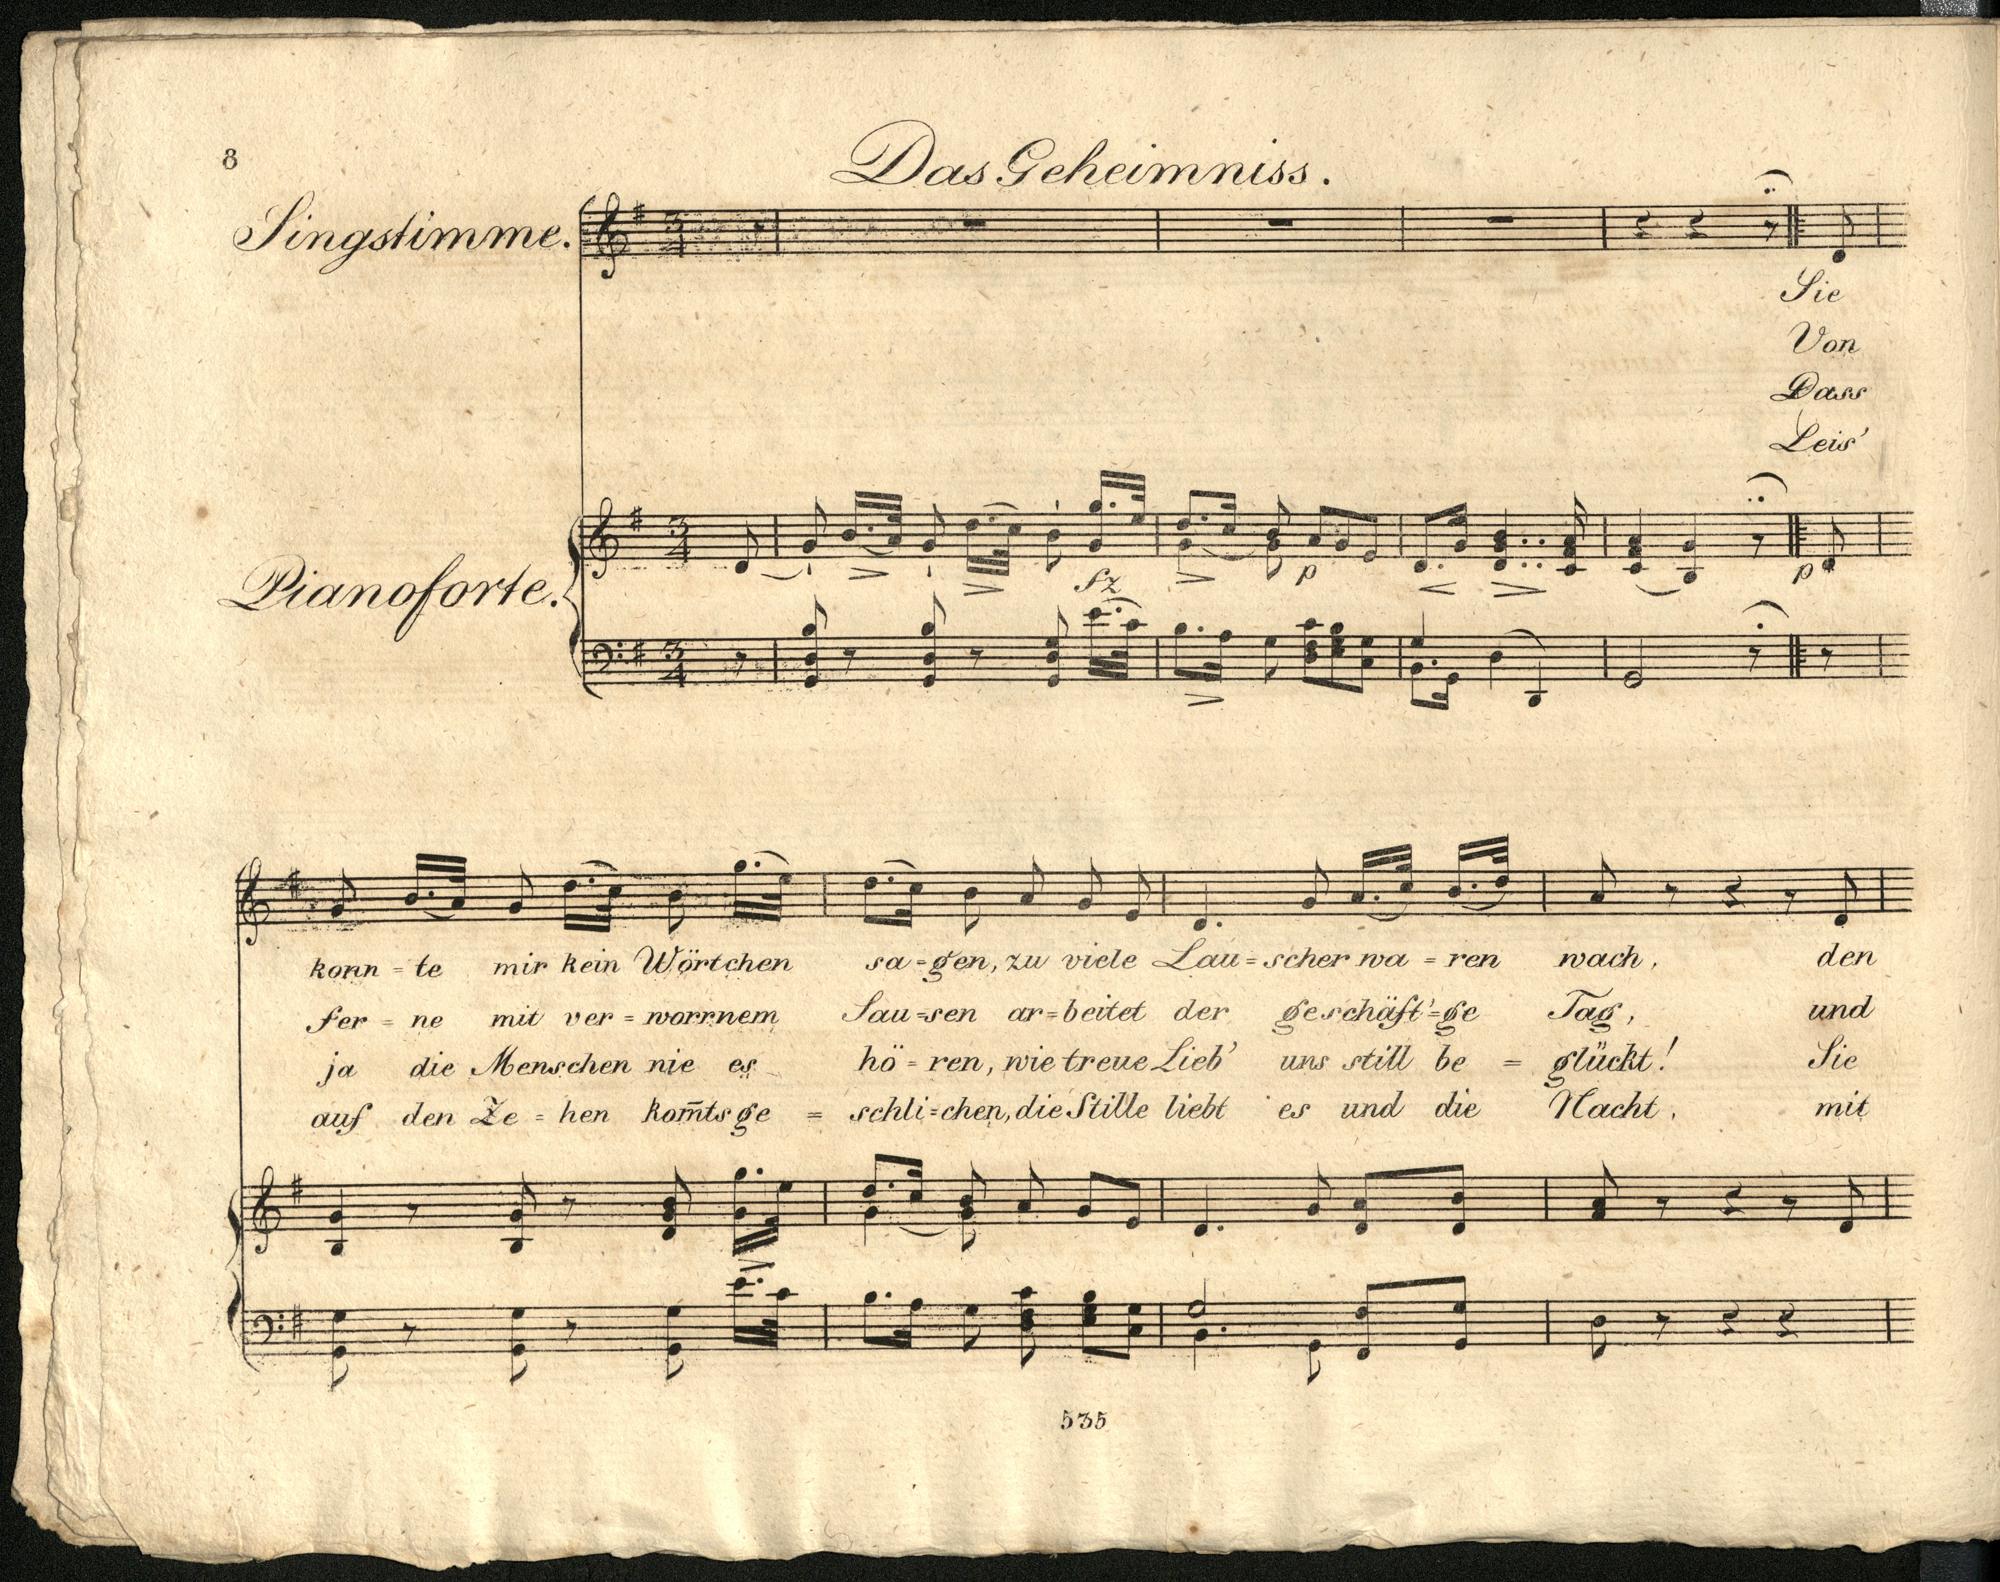 8
Das Geheimniss.
Singstimme.
Sie
Von
Dass
Leis'
Pianoforte.
sz
p
p
konn = te mir kein Wörtchen sa = gen, zu viele Lau = scher wa = ren wach, den
fer = ne mit ver = worrnem Sau = sen ar = beitet der geschäft' = ge Tag, und
ja die Menschen nie es hö = ren, wie treue Lieb' uns still be = glückt! Sie
auf den Ze = hen kom̅ts ge = schli = chen, die Stille liebt es und die Nacht, mit
535